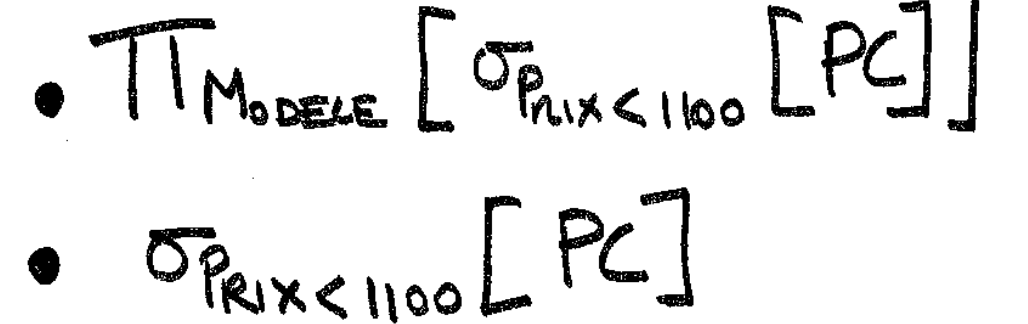 • π Modele [σ Prix < 1100 [PC]]
• σ PRIX < 1100 [PC]